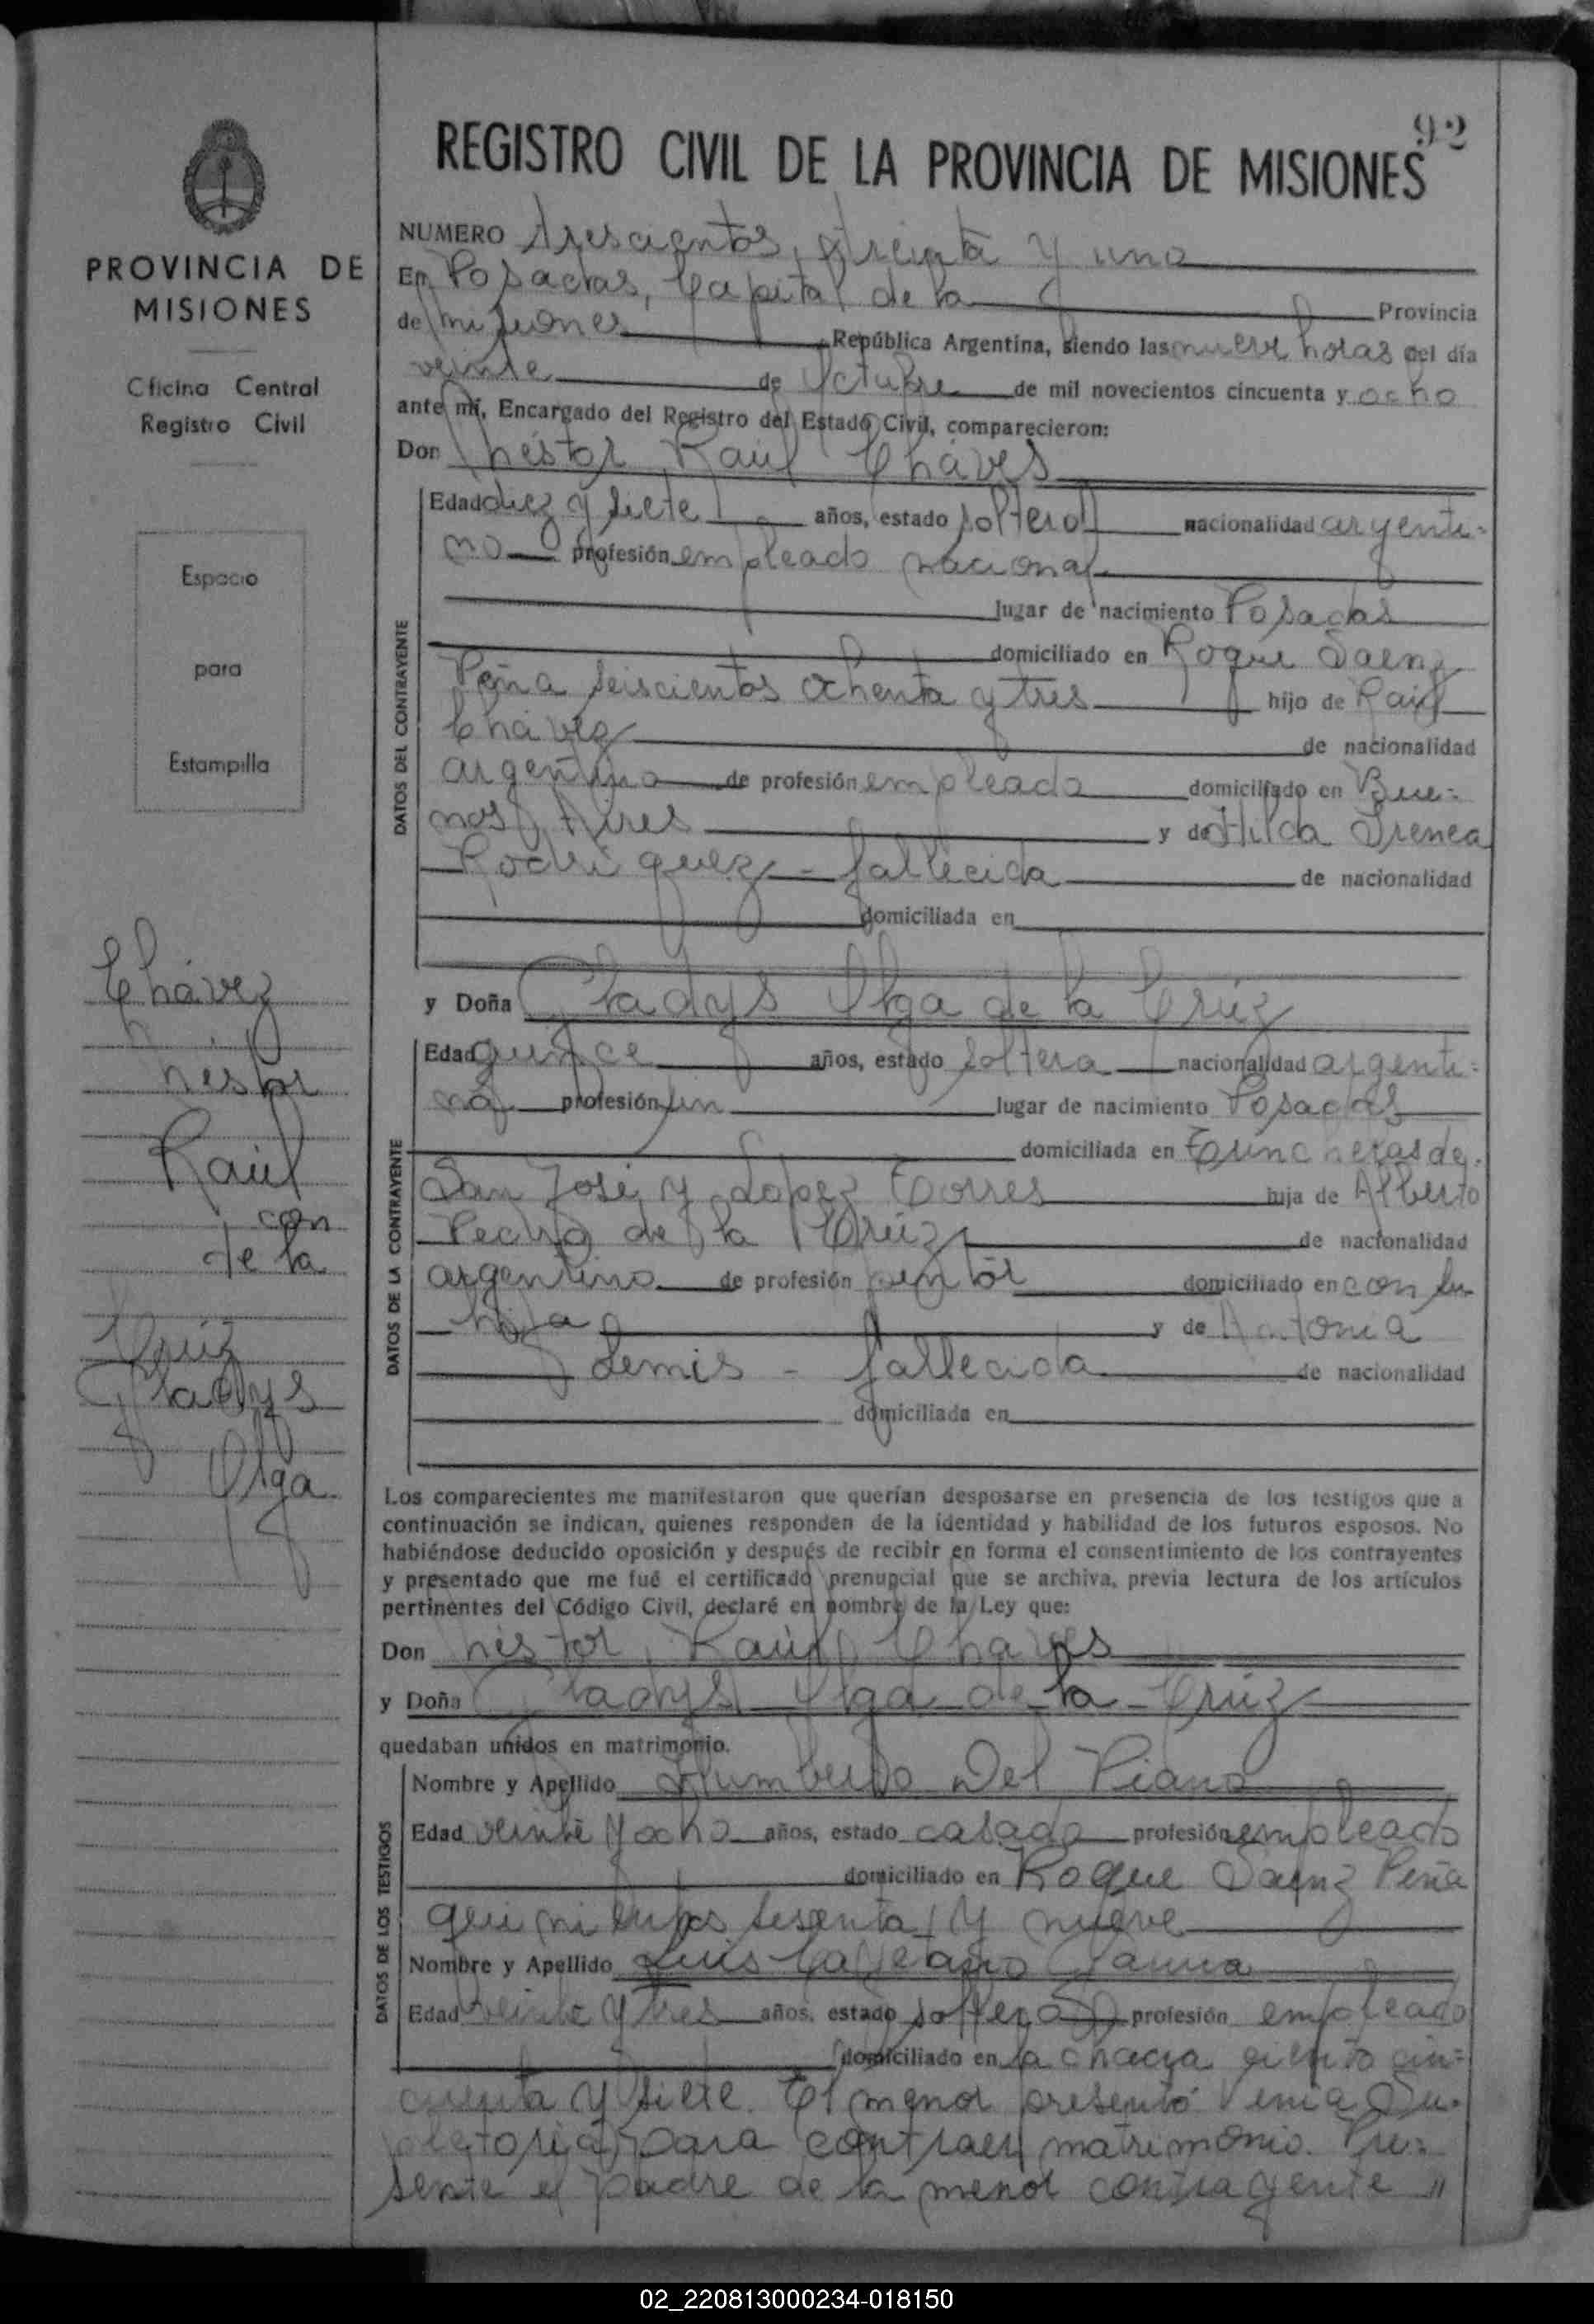 92
REGISTRO CIVIL DE LA PROVINCIA DE MISIONES
PROVINCIA DE
MISIONES
Oficina Central
Registro Civil
Espacio
para
Estampilla
Chávez
Néstor
Raúl
con
de la
Crúz
Gladys
Olga
NUMERO Trescientos treinta y uno
En Posadas, Capital de la Provincia
de Misiones República Argentina, siendo las nueve horas del día
veinte de Octubre de mil novecientos cincuenta y ocho
ante mí, Encargado del Registro del Estado Civil, comparecieron:
Don Néstor Raúl Chaves
DATOS DEL CONTRAYENTE
Edad diez y siete años, estado soltero nacionalidad argenti-
no profesión empleado nacional
lugar de nacimiento Posadas
domiciliado en Roque Saenz
Peña seiscientos ochenta y tres hijo de Raúl
Chávez de nacionalidad
argentino de profesión empleado domiciliado en Bue-
nos Aires y de Hilda Irenea
Rodriguez - fallecida de nacionalidad
domiciliada en
y Doña Gladys Olga de la Crúz
DATOS DE LA CONTRAYENTE
Edad quince años, estado soltera nacionalidad argenti-
na profesión sin lugar de nacimiento Posadas
domiciliada en Trincheras de
San José y López Torres hija de Alberto
Pedro de la Crúz de nacionalidad
argentino de profesión pintor domiciliado en con su
hija y de Antonia
Lemis - fallecida de nacionalidad
domiciliada en
Los comparecientes me manifestaron que querían desposarse en presencia de los testigos que a
continuación se indican, quienes responden de la identidad y habilidad de los futuros esposos. No
habiéndose deducido oposición y después de recibir en forma el consentimiento de los contrayentes
y presentado que me fué el certificado prenupcial que se archiva, previa lectura de los artículos
pertinentes del Código Civil, declaré en nombre de la Ley que:
Don Néstor Raúl Chaves
y Doña Gladys Olga de la Crúz
quedaban unidos en matrimonio.
DATOS DE LOS TESTIGOS
Nombre y Apellido Humberto Del Piano
Edad veinte y ocho años, estado casado profesión empleado
domiciliado en Roque Saenz Peña
quinientos sesenta y nueve
Nombre y Apellido Luis Cayetano
Edad veinte y tres años, estado soltero profesión empleado
domiciliado en la chacra ciento cin-
cuenta y siete. El menor presentó Venia Su-
pletoria para contraer matrimonio. Pre-
sente el padre de la menor contrayente "
02_220813000234-018150